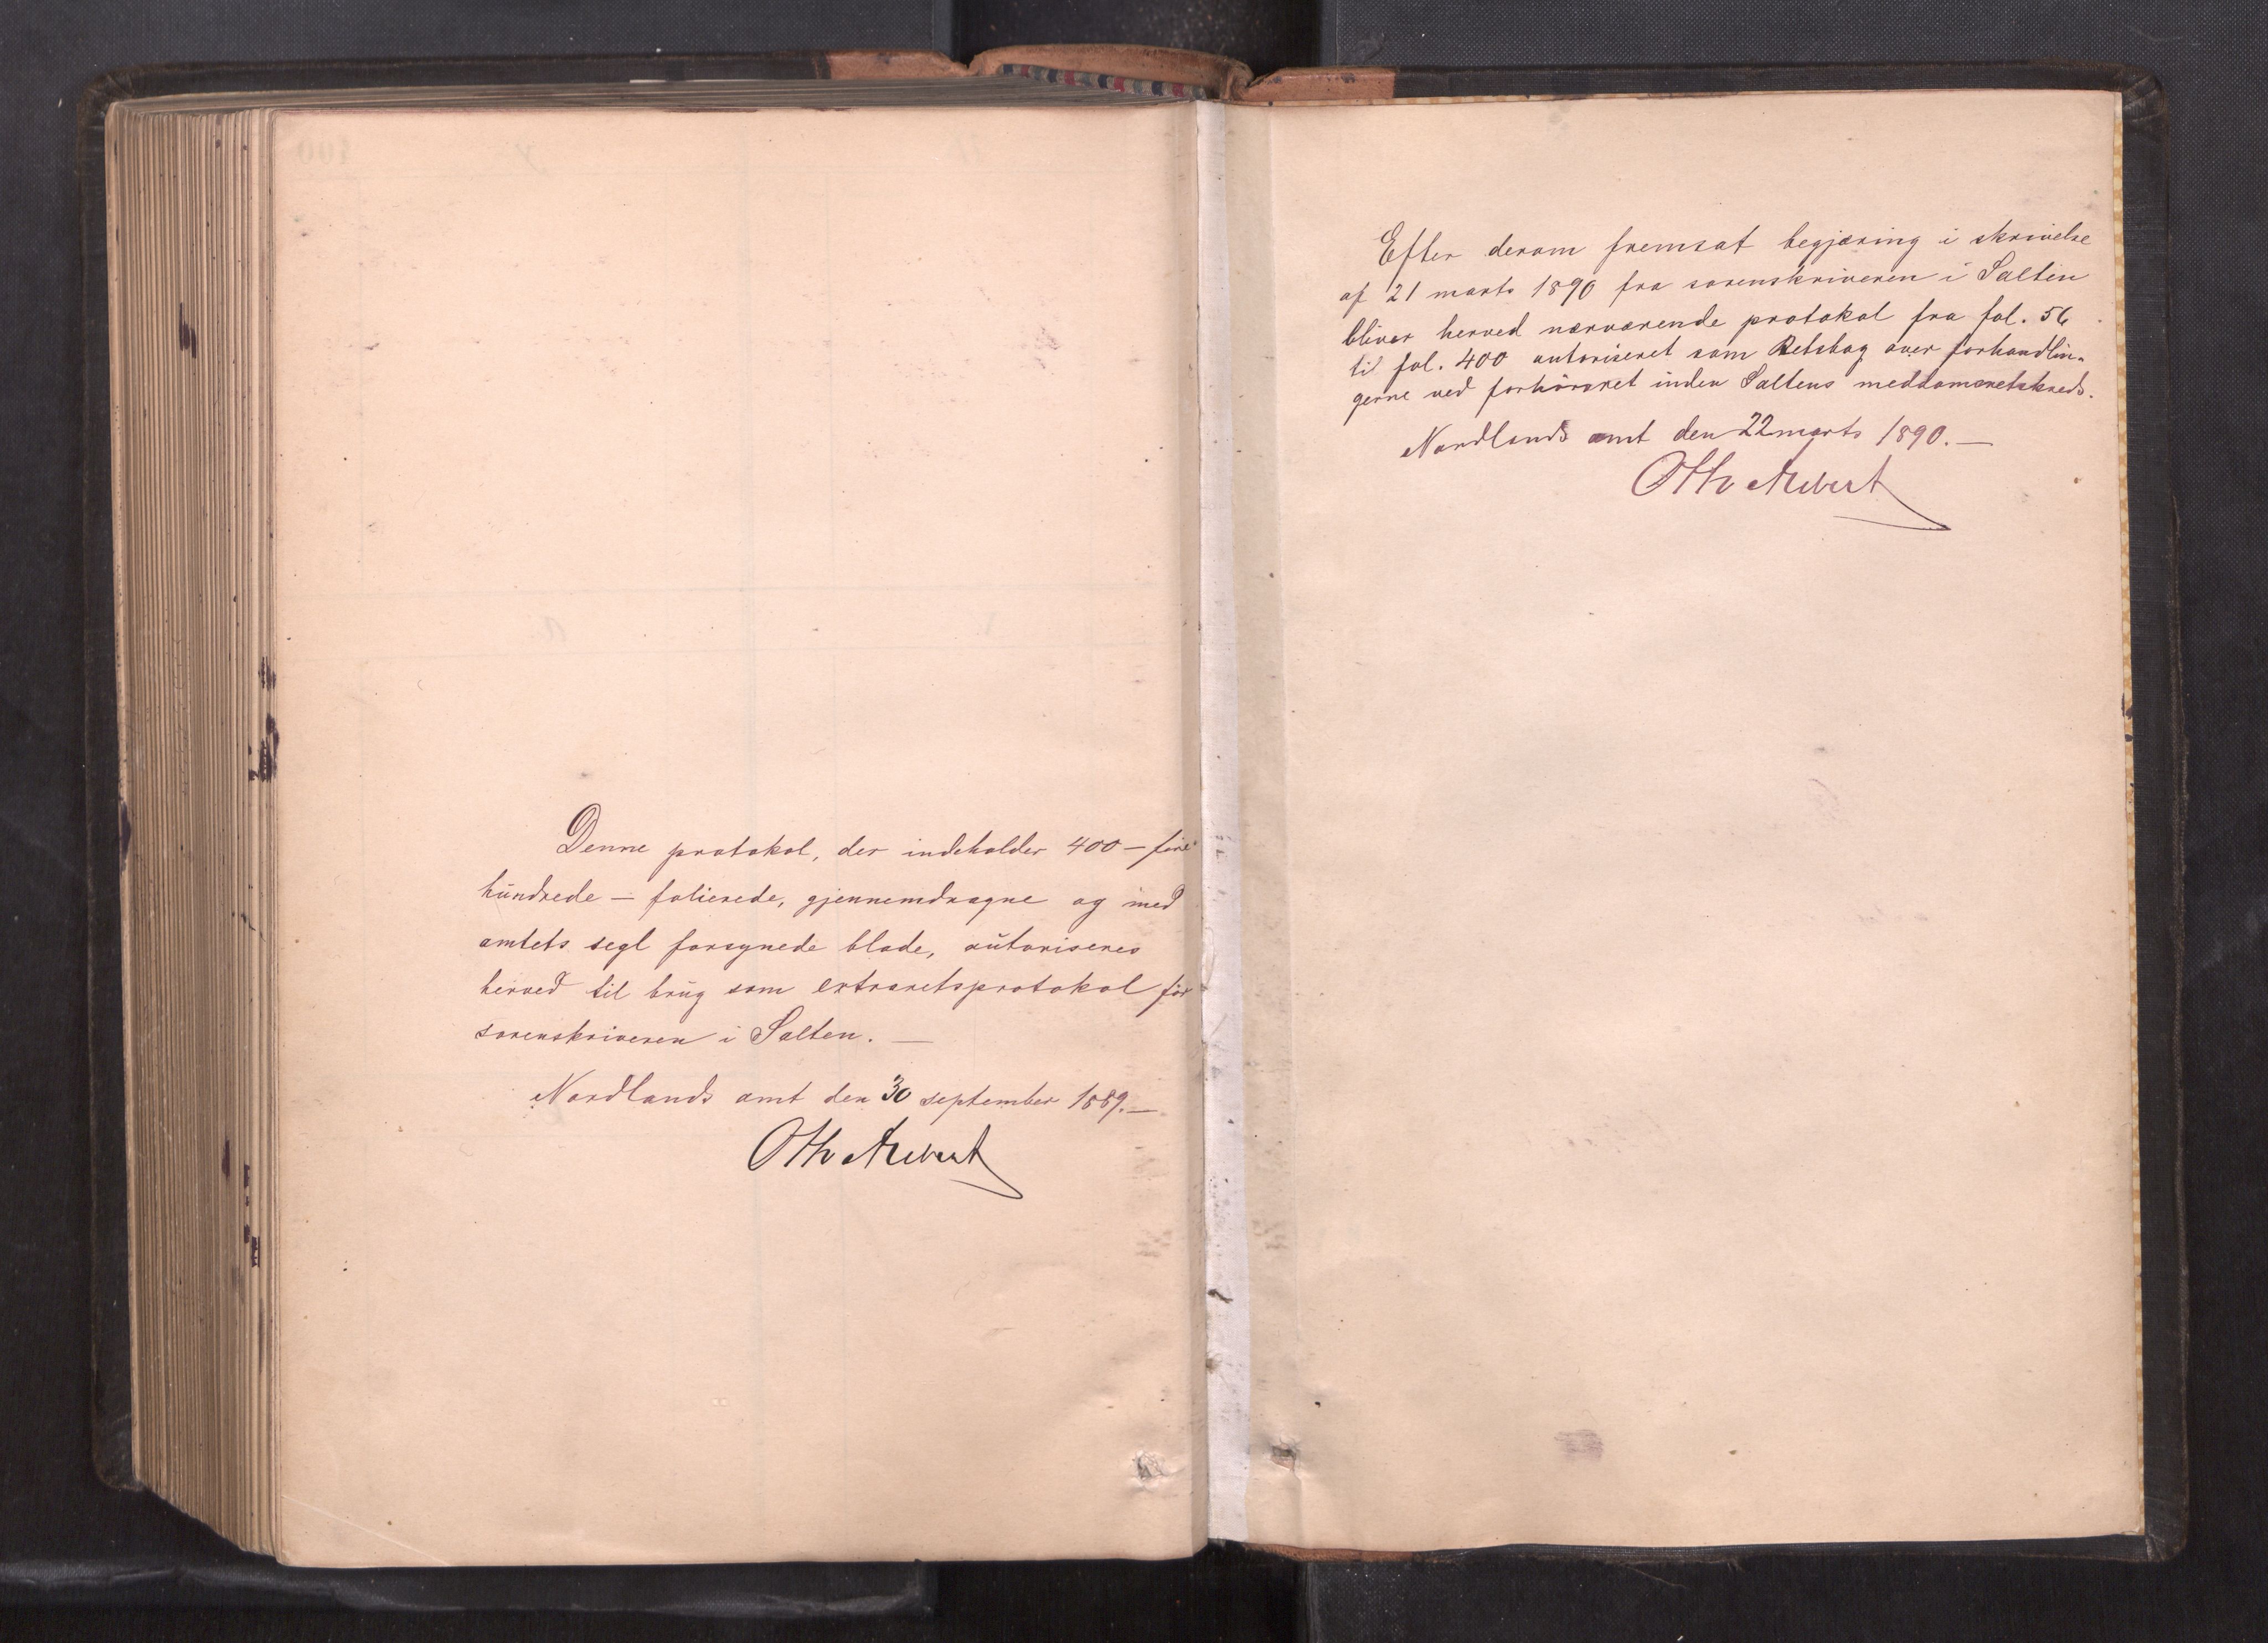 Denne protokol, der indeholder 400 – fire
hundrede – folierede, gjennemdragne og med
amtets segl forsynede blade, autoriseres
herved til brug som extraretsprotokol for
sorenskriveren i Salten. —
Nordlands amt den 30 september 1889. —
Efter derom fremsat begjæring i skrivelse
af 21 marts 1890 fra sorenskriveren i Salten
bliver herved nærværende protokol fra fol. 56
til fol. 400 autoriseret som Retsbog over forhandlin-
gerne ved forhørsret inden Saltens meddomsretskreds.
Nordlands amt den 22 marts 1890. —